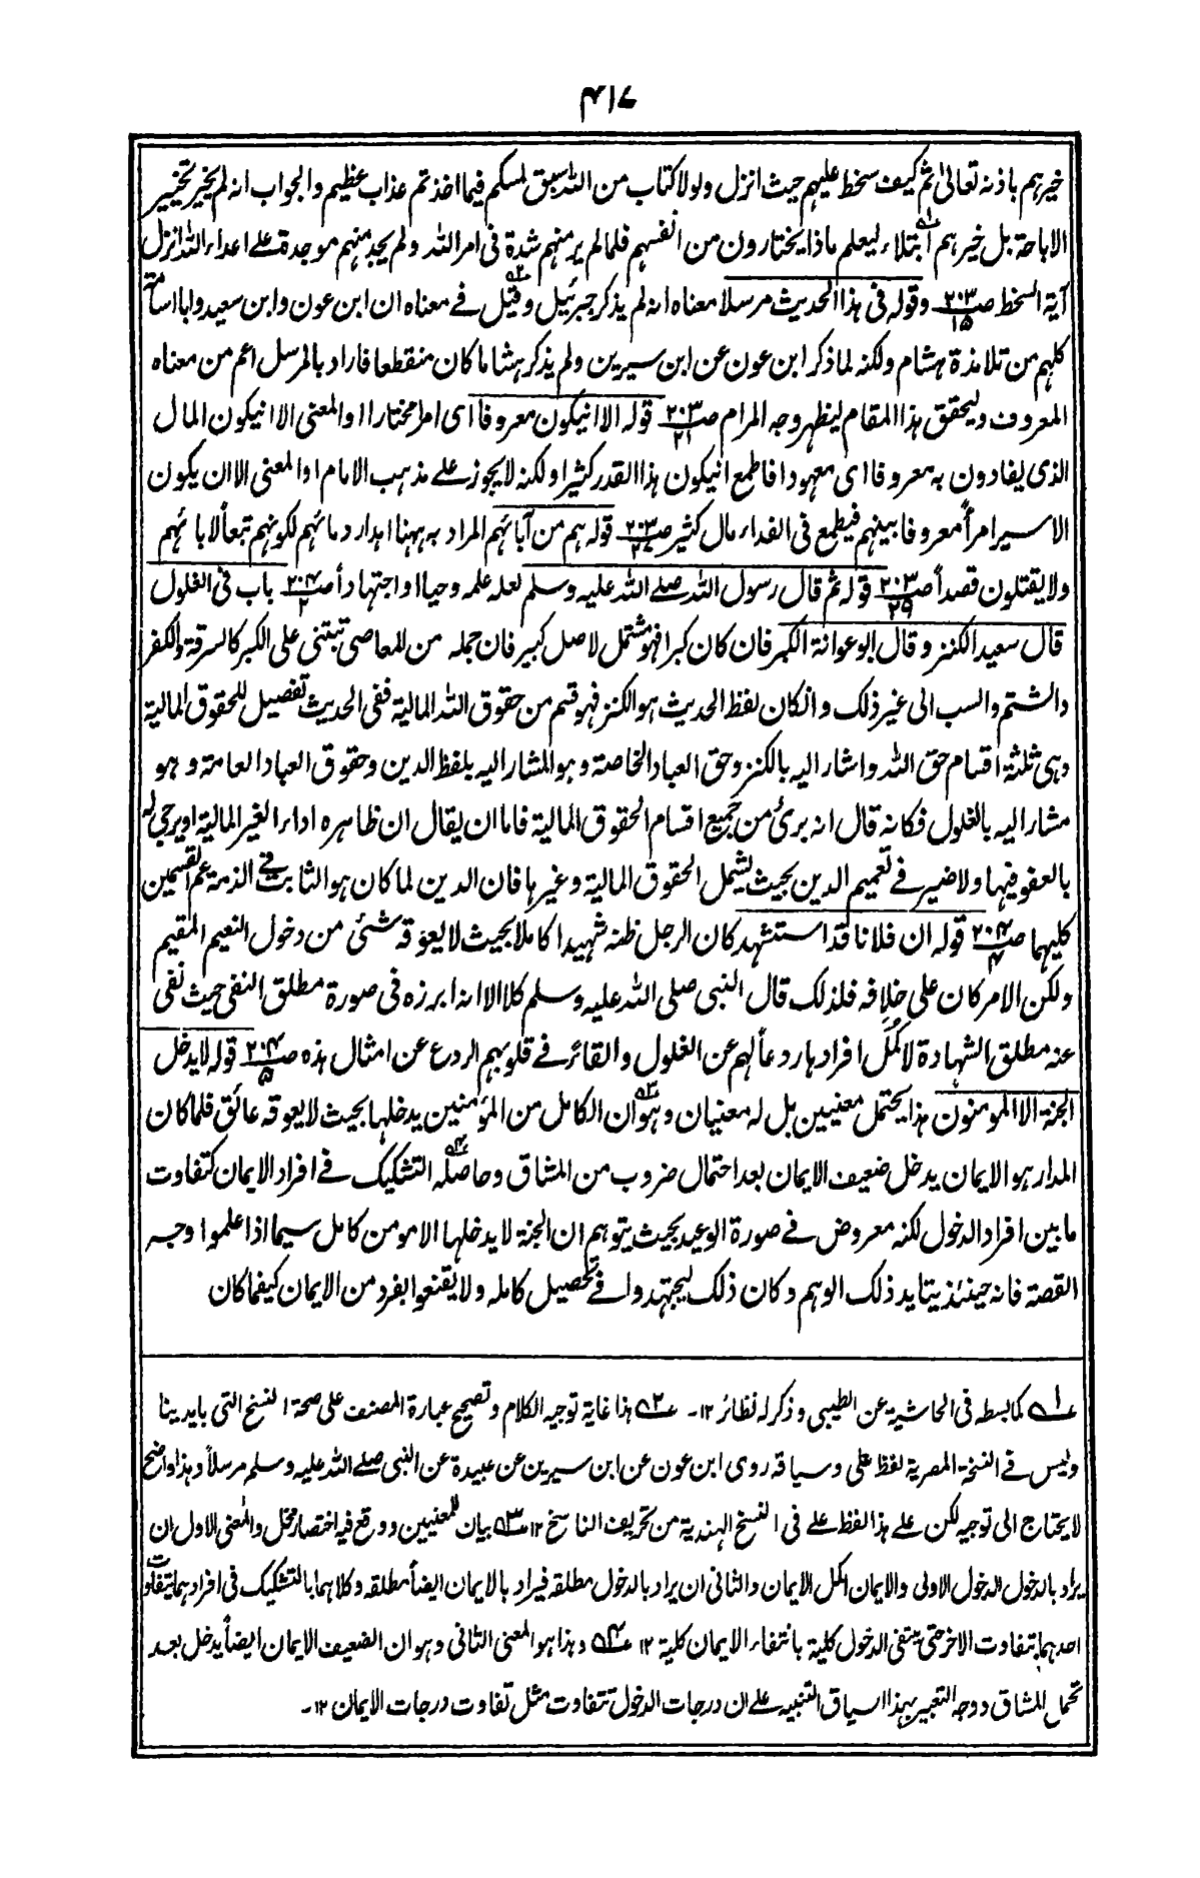 ۴۱۷
خيرهم باذنه تعالى ثم كيف سخط عليهم حيث انزل ولولا كتاب من الله سبق لمسكم فيما اخذتم عذاب عظيم والجواب انه لم يخير تخيير
الاباحة بل خيرهم ابتلاء ليعلم ماذا يختارون من انفسهم فلما لم ير منهم شدة فى امر الله ولم يجد منهم موجدة على اعداء الله انزل
آية السخط ص۲۰۳/۱۵ وقوله فى هذا الحديث مرسلا معناه انه لم يذكر جبرئيل وقيل فى معناه ان ابن عون وابن سعيد وابا اسامة
كلهم من تلامذة هشام ولكنه لما ذكر ابن عون عن ابن سيرين ولم يذكر هشاما كان منقطعا فاراد بالمرسل اعم من معناه
المعروف وليحقق هذا المقام ليظهر وجه المرام ص۲۰۳/۲۱ قوله الا انيكون معروفا اى امرا مختارا او المعنى الا انيكون المال
الذى يفادون به معروفا اى معهودا فاطمع انيكون هذا القدر كثيرا ولكنه لا يجوز على مذهب الامام اوالمعنى الا ان يكون
الاسير امرأً معروفا بينهم فيطمع فى الفداء مال كثير ص۲۰۳ قوله هم من آبائهم المراد به ههنا اهدار دمائهم لكونهم تبعاً لابائهم
ولا يقتلون قصداً ص۲۰۳/۲۹ قوله ثم قال رسول الله صلے الله عليه وسلم لعله علمه وحيا او اجتهاداً ص۲۰۴/۲ باب فى الغلول
قال سعيد الكنز وقال ابو عوانة الكبر فان كان كبرا فهو مشتمل لاصل كبير فان جمله من المعاصى تبتنى على الكبر كالسرقة والكفر
والشتم والسب الى غير ذلك وانكان لفظ الحديث هو الكنز فهو قسم من حقوق الله المالية ففى الحديث تفصيل للحقوق المالية
وهى ثلثة اقسام حق الله واشار اليه بالكنز وحق العباد الخاصة وهو المشار اليه بلفظ الدين وحقوق العباد العامة وهو
مشار اليه بالغلول فكانه قال انه برئ من جميع اقسام الحقوق المالية فاما ان يقال ان ظاهره اداء الغير المالية او يرجى له
بالعفو فيها ولا ضير فے تعميم الدين بحيث يشمل الحقوق المالية وغيرها فان الدين لما كان هو الثابت فے الذمة عم القسمين
كليهما ص۲۰۴/۴ قوله ان فلانا قد استشهد كان الرجل ظنه شهيدا كاملا بحيث لا يعوقه شئ من دخول النعيم المقيم
ولكن الامر كان على خلافه فلذلك قال النبى صلى الله عليه وسلم كلا الا انه ابرزه فى صورة مطلق النفى حيث نفى
عنه مطلق الشهادة لا كمل افرادها ردعاً لهم عن الغلول والقاء فے قلوبهم الردع عن امثال هذه ص۲۰۴/۵ قوله لا يدخل
الجنة الا المومنون هذا يحتمل معنيين بل له معنيان وهو ان الكامل من المؤمنين يدخلها بحيث لا يعوقه عائق فلما كان
المدار هو الايمان يدخل ضعيف الايمان بعد احتمال ضروب من المشاق وحاصله التشكيك فے افراد الايمان كتفاوت
ما بين افراد الدخول لكنه معروض فے صورة الوعيد بحيث يتوهم ان الجنة لا يدخلها الا مومن كامل سيما اذا علموا وجه
القصة فانه حينئذ يتايد ذلك الوهم وكان ذلك ليجتهدوا فے تحصيل كامله ولا يقنعوا بفرد من الايمان كيفما كان
؎۱ كما بسطه فى الحاشية عن الطيبى وذكر له نظائر ۱۲۔ ؎۲ هذا غاية توجيه الكلام وتصحيح عبارة المصنف على صحة النسخ التى بايدينا
وليس فے النسخة المصرية لفظ على وسياقه روى ابن عون عن ابن سيرين عن عبيدة عن النبى صلے الله عليه وسلم مرسلاً وهذا واضح
لا يحتاج الى توجيه لكن على هذا لفظ على فى النسخ الهندية من تحريف الناسخ ۱۲ ؎۳ بيان للمعنيين ووقع فيه اختصار مخل والمعنى الاول ان
يراد بالدخول الدخول الاولى والايمان اكمل الايمان والثانى ان يراد بالدخول مطلقه فيراد بالايمان ايضاً مطلقه وكلاهما بالتشكيك فى افرادهما يتفاوت
احدهما بتفاوت الاخر حتى ينتفى الدخول كلية بانتفاء الايمان كلية ۱۲ ؎۴ وهذا هو المعنى الثانى وهو ان الضعيف الايمان ايضاً يدخل بعد
تحمل المشاق ووجه التعبير بهذا السياق التنبيه على ان درجات الدخول تتفاوت مثل تفاوت درجات الايمان ۱۲۔